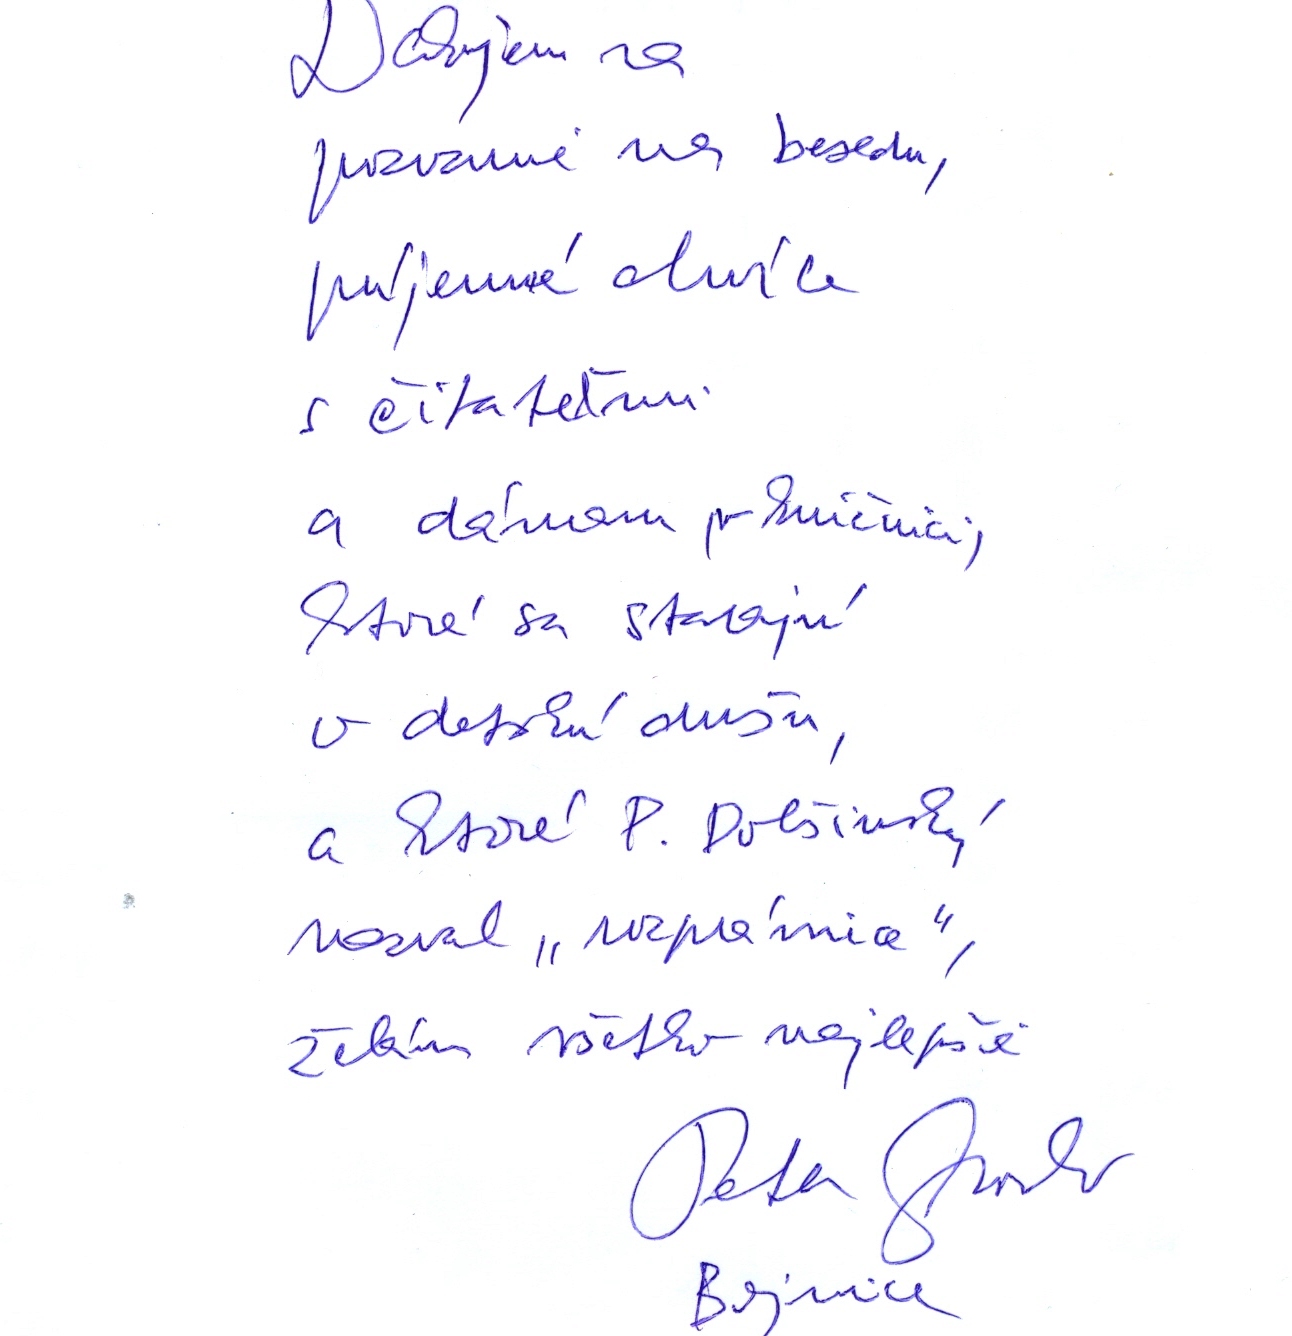 Ďakujem za
pozvanie na besedu,
príjemné chvíle
s čitateľmi
a dámam v knižnici,
ktoré sa starajú
o detskú dušu,
a ktoré P. Dobšinský
nazval „rozprávnice“,
želám všetko najlepšie
Peter
Bojnice